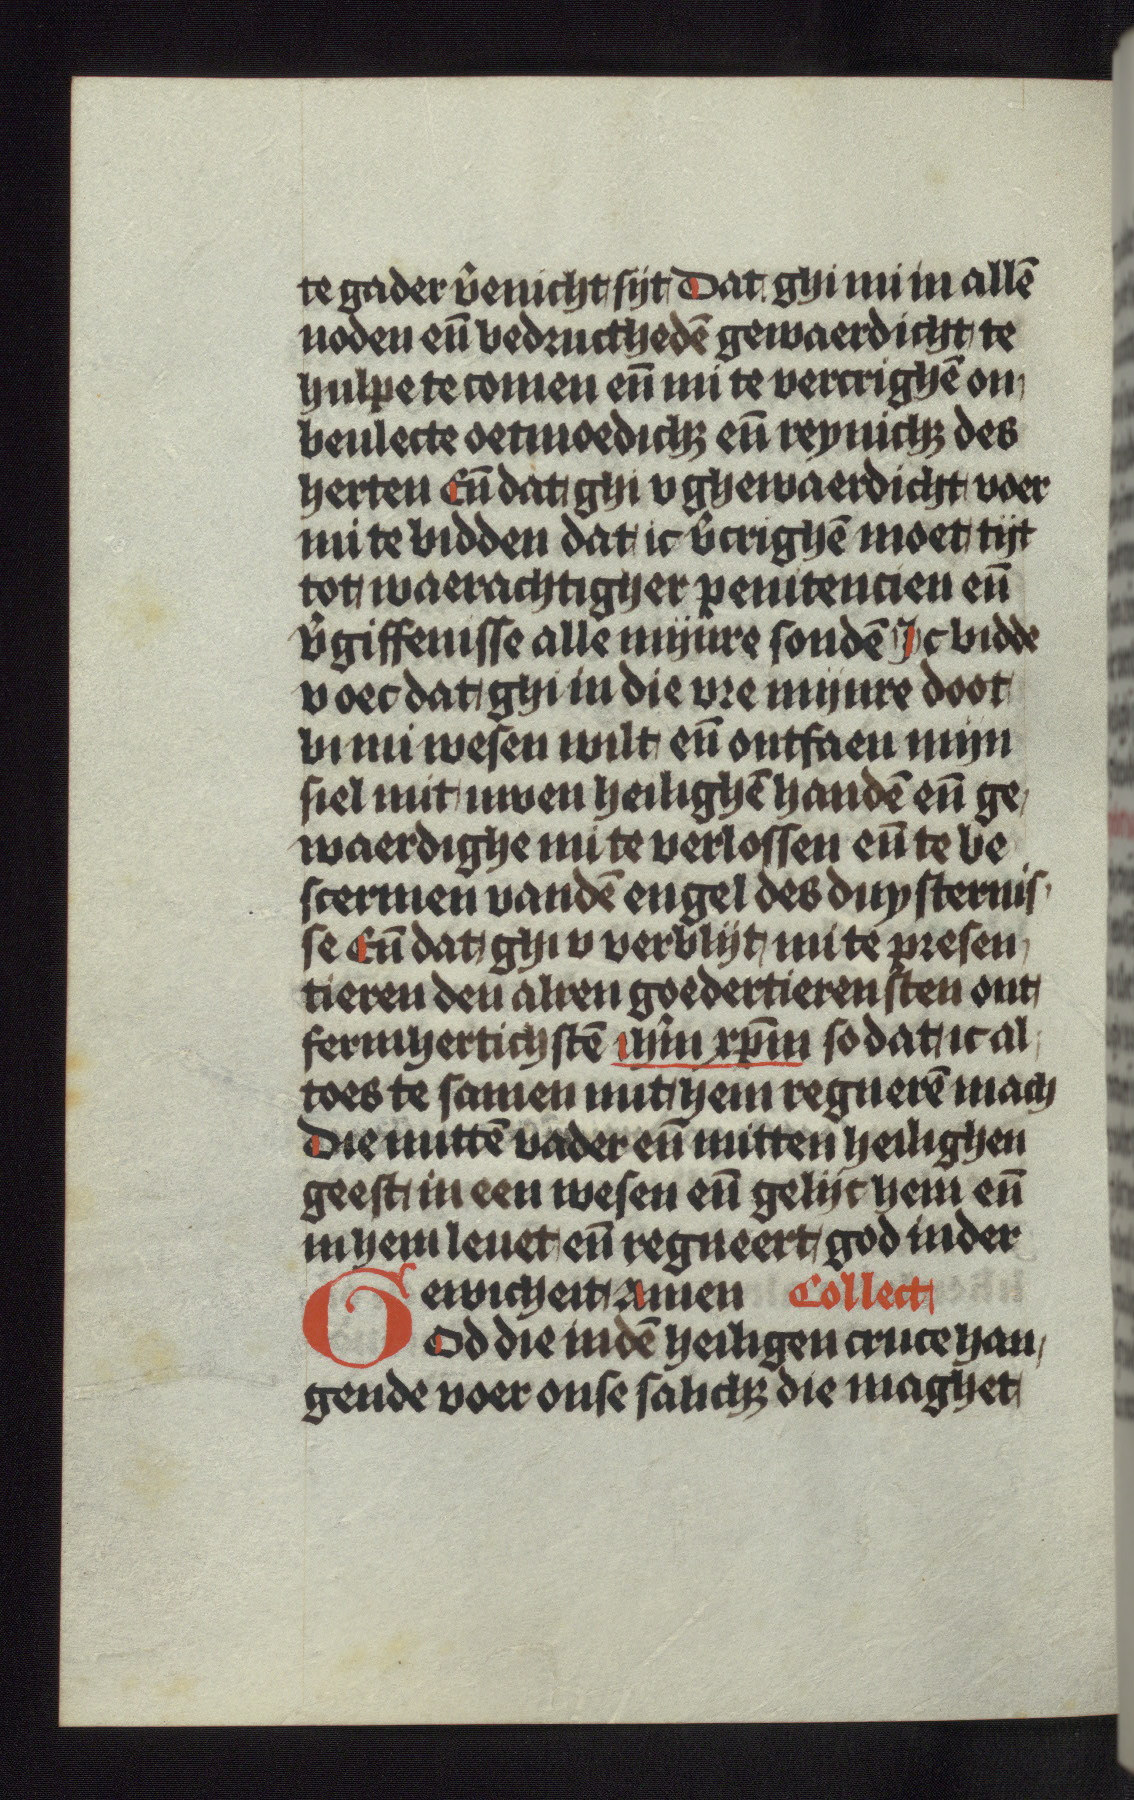 te gader v̄enicht sijt Dat ghi mi in allē
noden eñ bedructhedē gewaerdicht te
hulpe te comen eñ mi te vercrighē on
beulecte oetmoedichꝫ eñ reynichꝫ des
herten Eñ dat ghi v ghewaerdicht voer
mi te bidden dat ic v̄crighē moet tijt
tot waerachtigher penitencien eñ
v̄giffenisse alle mijnre sondē Ic bidde
v oec dat ghi in die vre mijnre doot
bi mi wesen wilt eñ ontfaen mijn
siel mit uwen heilighē handē eñ ge
waerdighe mi te verlossen eñ te be
scermen vandē engel des duysternis
se Eñ dat ghi v verblijt mi te presen
tieren den alren goedertierensten ont
fermhertichstē ihm̄ xp̄m so dat ic al
toes te samen mit hem regnerē mach
Die mittē vader eñ mitten heilighen
geest in een wesen eñ gelijc hem eñ
in hem leuet eñ regneert god in der
ewicheit Amen Collect
God die in dē heiligen cruce han
gende voer onse salichꝫ die maghet